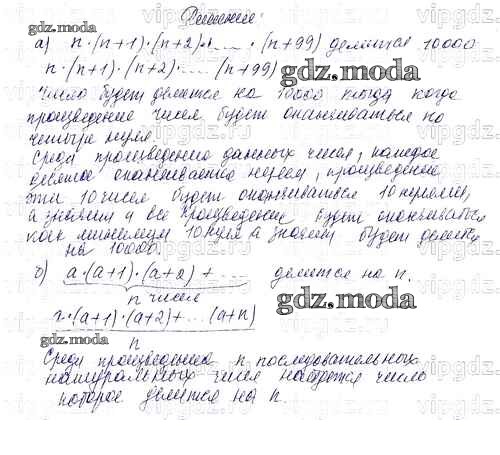 Решение:
а) n·(n+1)·(n+2)·1..... · (n+99) делится 10000
n·(n+1)·(n+2)..... (n+99)
Число будет делится на 10000 тогда когда
произведение чисел будет оканчиваться на
четыре нуля.
Среди произведение данных чисел, каждое
десятое оканчивается нулем, произведение
эти 10 чисел будет оканчиваться 10 нулями,
а значит и все произведение будет оканчиваться
как минимум 10 нул а значит будет делится
на 10000.
б) a·(a+1)·(a+2)+.... делится на n.
n чисел
·(a+1)·(a+2)+... (a+n)
n
Среди произведения n последовательных
натуральных чисел найдется число
которое делится на n.
gdz.moda
gdz.moda
gdz.moda
gdz.moda
gdz.moda